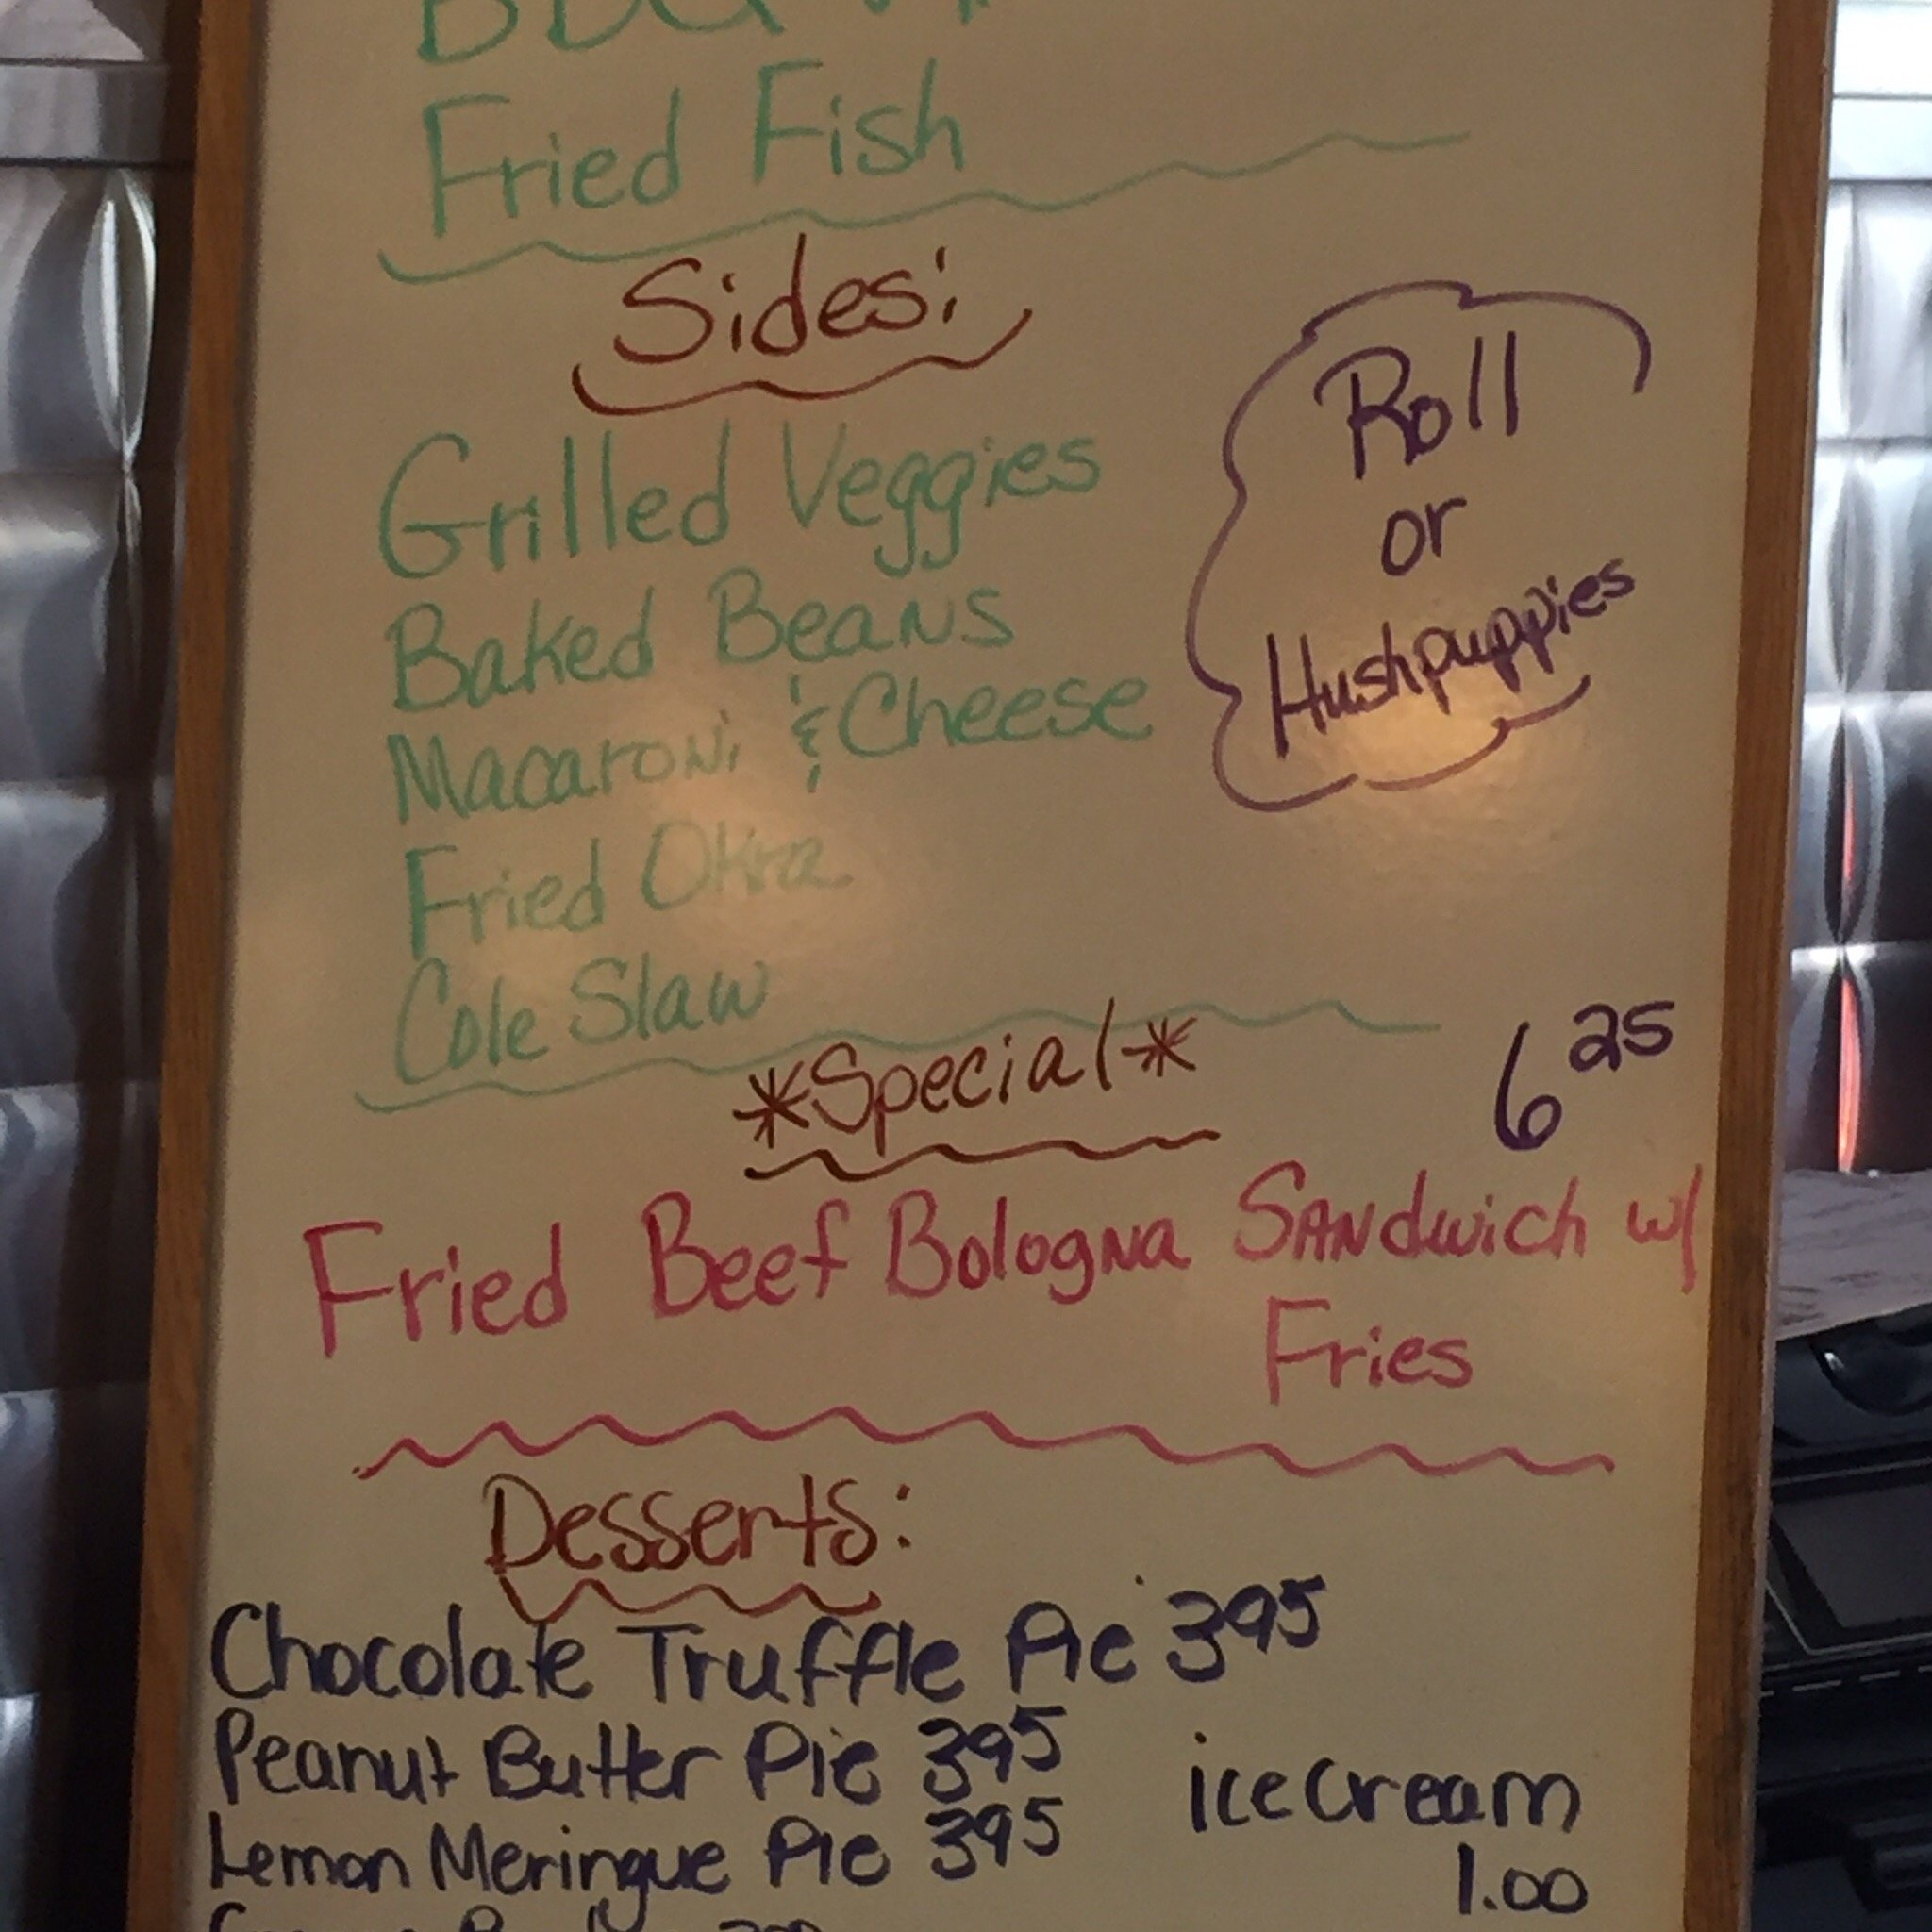 Fried Fish
Sides:
Grilled Veggies
Baked Beans
Macaroni & Cheese
Fried Okra
Cole Slaw
Roll
or
Hushpuppies
*Special*
6 25
Fried Beef Bologna Sandwich w/
Fries
Desserts:
Chocolate Truffle Pie 395
Peanut Butter Pie 395
Lemon Meringue Pie 395
ice cream
1.00